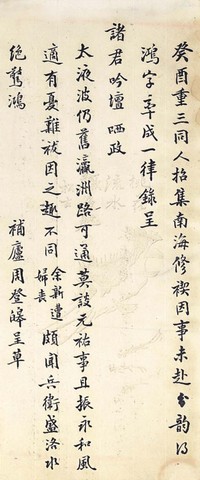 癸酉重三同人招集南海修禊因事未赴分韻得
鴻字率成一律錄呈
諸君吟壇 哂政
太液波仍舊瀛洲路可通莫談元祐事且振永和風
適有憂難祓因之趣不同 余新遭婦喪 頗聞兵衛盛洛水
絕驚鴻 補廬周登皞呈草